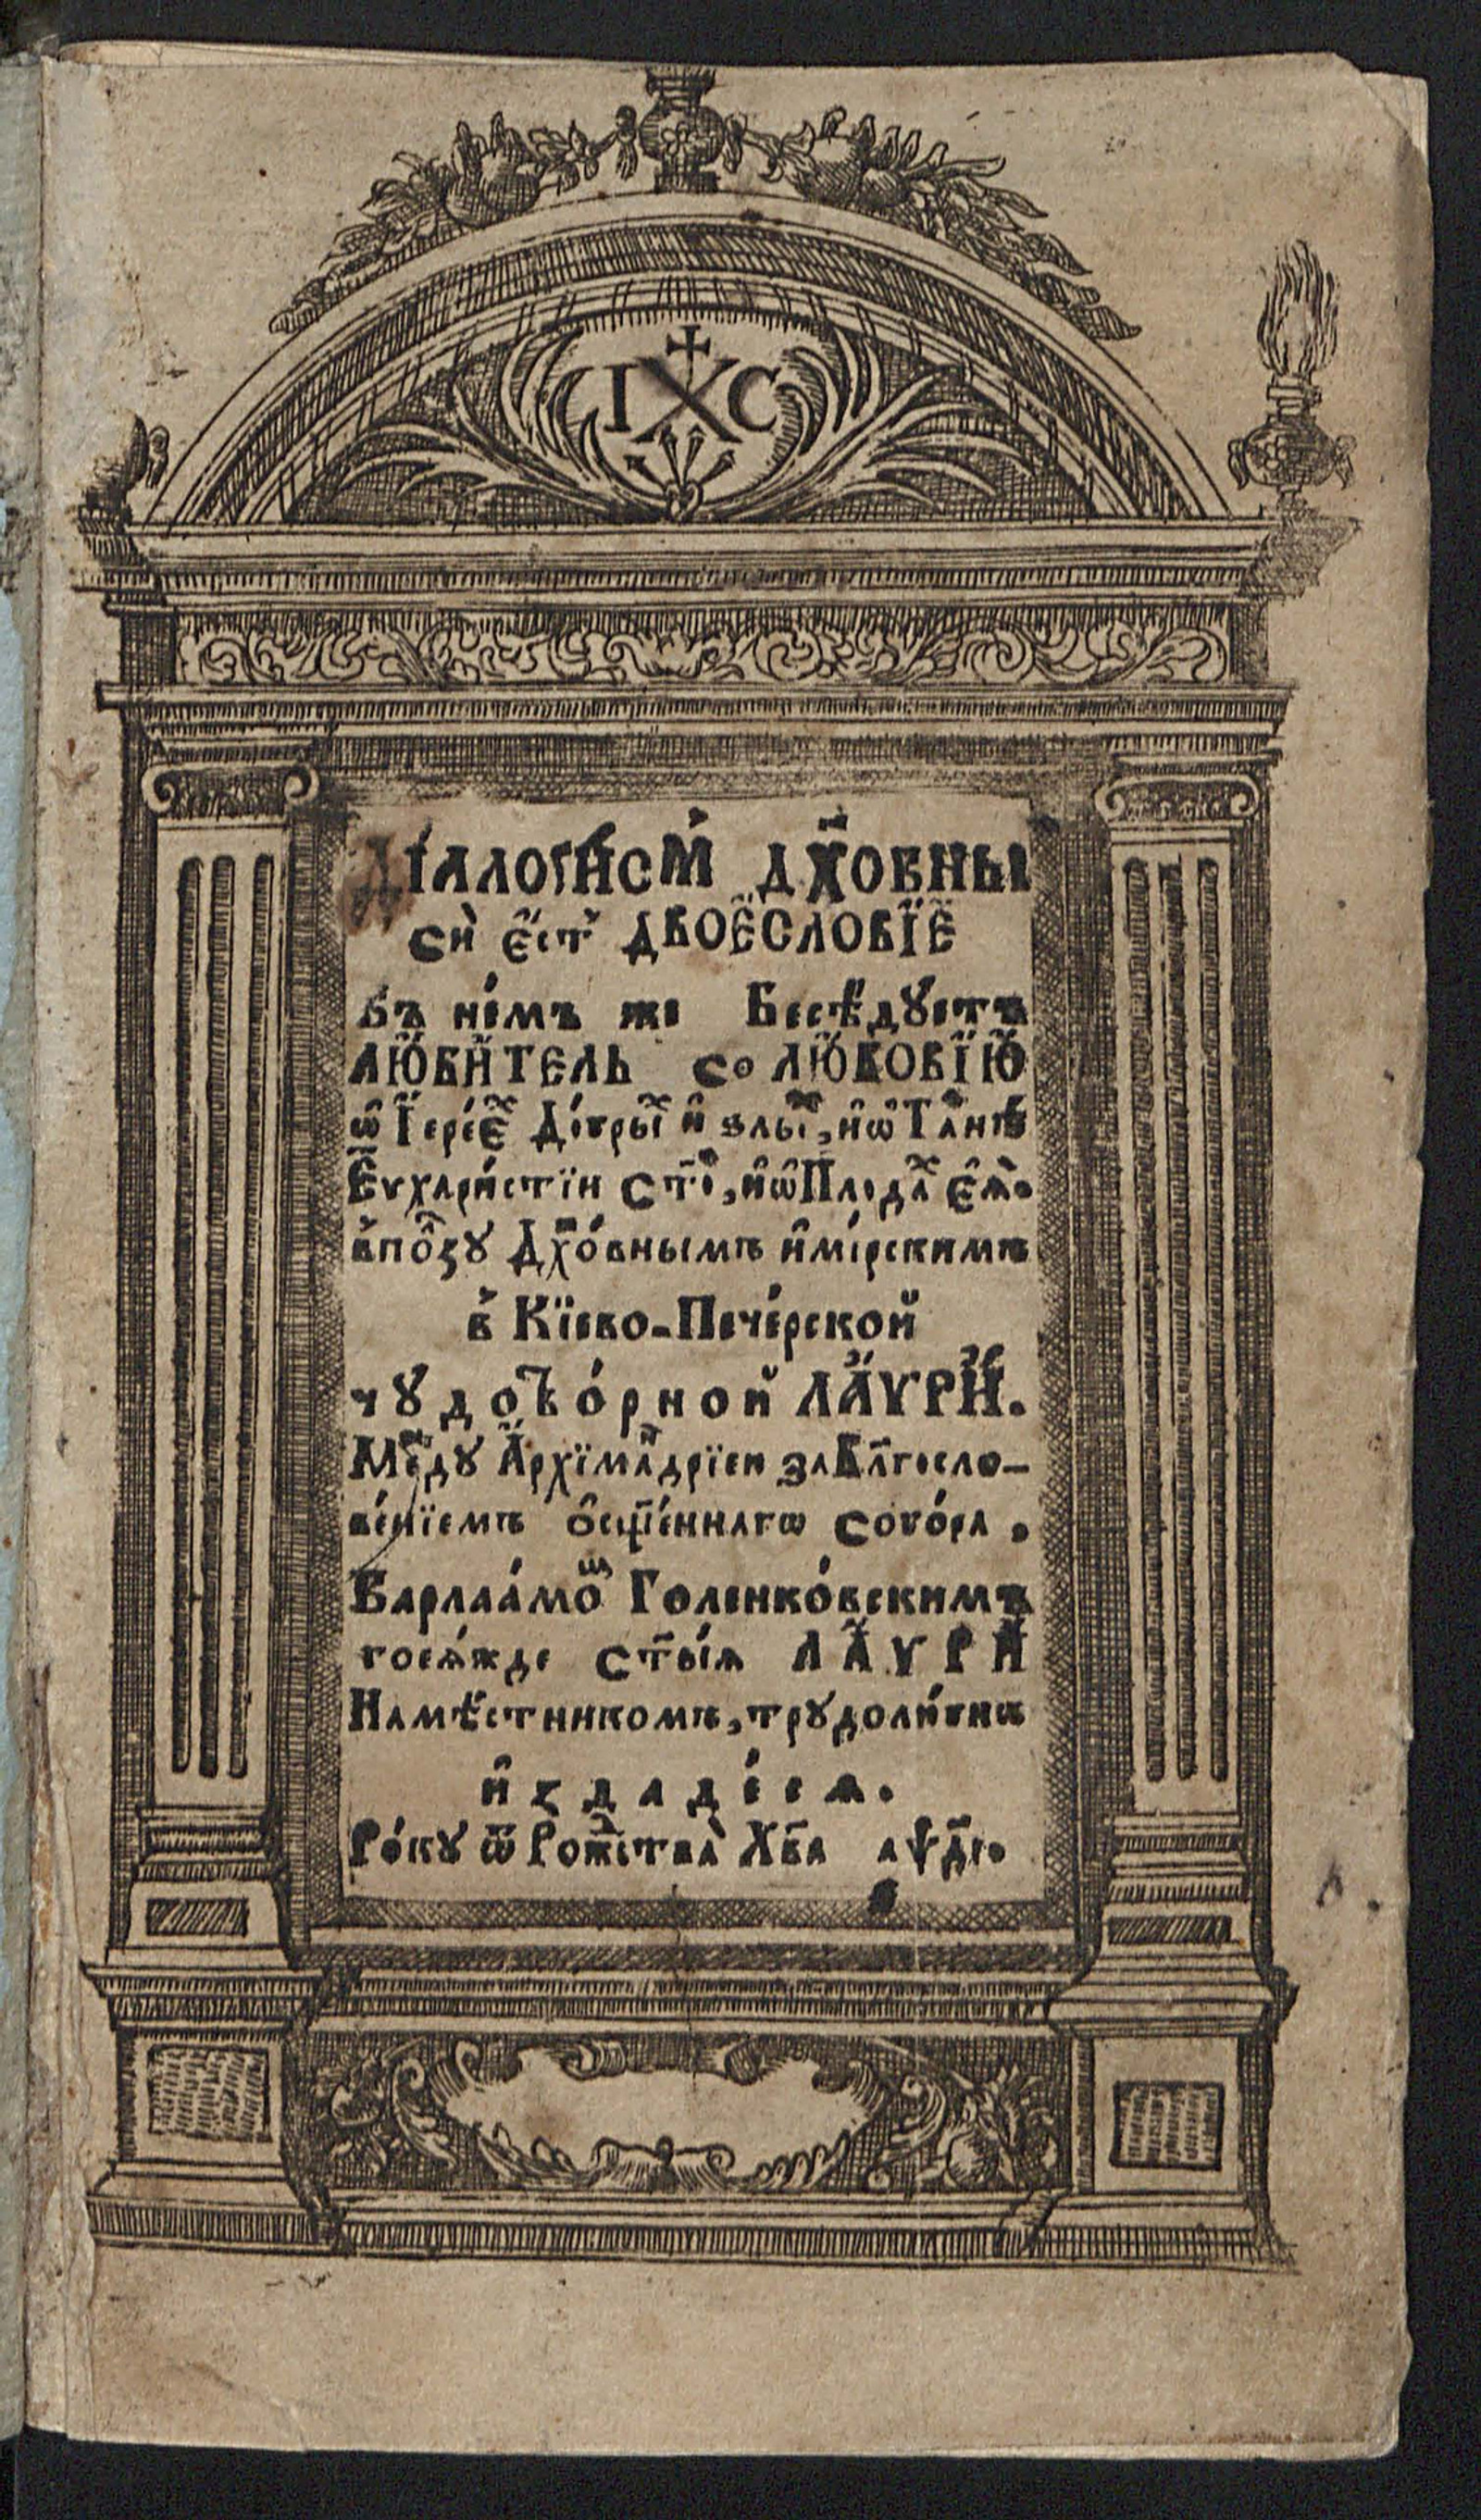 ІХС
Діалогісм҆ дх҃овны
си̏ е҆ст҆ двоесловїе
Въ немъ же Бесѣдуетъ
любитель со любовїю
ѡ҆ Їерееͯ Добрыͯ и҆ злыͯ, и҆ ѡ҆ Таинѣ
Еѵхарістїи ст҃о, и҆ ѡ҆ Плодаͯ еѧ̀.
в҆ по̑зу Дх҃о́внымъ и҆ мі́рскимъ
в҆ Кїево-Пече́рской
чудотво́рной Лаѵрѣ.
Меⷤду Архїмаⷩдрїеи за Блгⷭосло-
ве́нїемъ ѡ҆сщ҃е́ннагѡ собо́ра,
Варлаа́моⷨ Голенко́вскимъ
тоеѧ́жде ст҃ы́ѧ Лаѵри
Намѣстникомъ, трудолю́бнѣ
и҆здаде́сѧ.
Ро́ку ѿ Рожⷣства̀ Хв҃а аѱді.